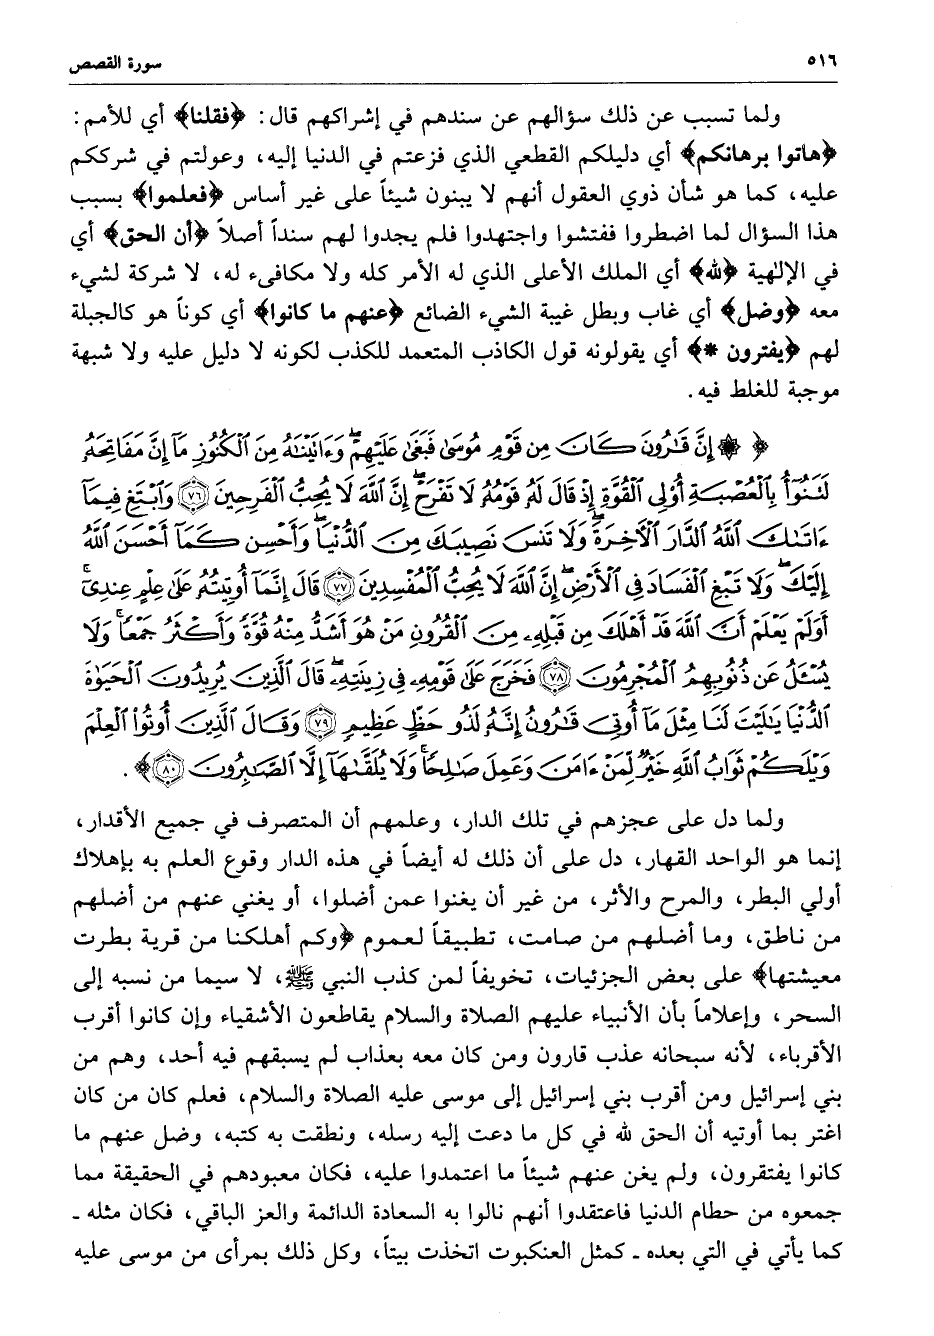 ٥١٦ سورة القصص
ولما تسبب عن ذلك سؤالهم عن سندهم في إشراكهم قال: ﴿فقلنا﴾ أي للأمم:
﴿هاتوا برهانكم﴾ أي دليلكم القطعي الذي فزعتم في الدنيا إليه، وعولتم في شرككم
عليه، كما هو شأن ذوي العقول أنهم لا يبنون شيئاً على غير أساس ﴿فعلموا﴾ بسبب
هذا السؤال لما اضطروا ففتشوا واجتهدوا فلم يجدوا لهم سنداً أصلاً ﴿أن الحق﴾ أي
في الإلٰهية ﴿لله﴾ أي الملك الأعلى الذي له الأمر كله ولا مكافىء له، لا شركة لشيء
معه ﴿وضل﴾ أي غاب وبطل غيبة الشيء الضائع ﴿عنهم ما كانوا﴾ أي كوناً هو كالجبلة
لهم ﴿يفترون *﴾ أي يقولونه قول الكاذب المتعمد للكذب لكونه لا دليل عليه ولا شبهة
موجبة للغلط فيه.
﴿ ۞ إِنَّ قَٰرُونَ كَانَ مِن قَوْمِ مُوسَىٰ فَبَغَىٰ عَلَيْهِمْ ۖ وَءَاتَيْنَٰهُ مِنَ ٱلْكُنُوزِ مَآ إِنَّ مَفَاتِحَهُۥ
لَتَنُوٓأُ بِٱلْعُصْبَةِ أُو۟لِى ٱلْقُوَّةِ إِذْ قَالَ لَهُۥ قَوْمُهُۥ لَا تَفْرَحْ ۖ إِنَّ ٱللَّهَ لَا يُحِبُّ ٱلْفَرِحِينَ ٧٦ وَٱبْتَغِ فِيمَآ
ءَاتَىٰكَ ٱللَّهُ ٱلدَّارَ ٱلْءَاخِرَةَ ۖ وَلَا تَنسَ نَصِيبَكَ مِنَ ٱلدُّنْيَا ۖ وَأَحْسِن كَمَآ أَحْسَنَ ٱللَّهُ
إِلَيْكَ ۖ وَلَا تَبْغِ ٱلْفَسَادَ فِى ٱلْأَرْضِ ۖ إِنَّ ٱللَّهَ لَا يُحِبُّ ٱلْمُفْسِدِينَ ٧٧ قَالَ إِنَّمَآ أُوتِيتُهُۥ عَلَىٰ عِلْمٍ عِندِىٓ ۚ
أَوَلَمْ يَعْلَمْ أَنَّ ٱللَّهَ قَدْ أَهْلَكَ مِن قَبْلِهِۦ مِنَ ٱلْقُرُونِ مَنْ هُوَ أَشَدُّ مِنْهُ قُوَّةً وَأَكْثَرُ جَمْعًا ۚ وَلَا
يُسْـَٔلُ عَن ذُنُوبِهِمُ ٱلْمُجْرِمُونَ ٧٨ فَخَرَجَ عَلَىٰ قَوْمِهِۦ فِى زِينَتِهِۦ ۖ قَالَ ٱلَّذِينَ يُرِيدُونَ ٱلْحَيَوٰةَ
ٱلدُّنْيَا يَٰلَيْتَ لَنَا مِثْلَ مَآ أُوتِىَ قَٰرُونُ إِنَّهُۥ لَذُو حَظٍّ عَظِيمٍ ٧٩ وَقَالَ ٱلَّذِينَ أُوتُوا۟ ٱلْعِلْمَ
وَيْلَكُمْ ثَوَابُ ٱللَّهِ خَيْرٌ لِّمَنْ ءَامَنَ وَعَمِلَ صَٰلِحًا ۚ وَلَا يُلَقَّىٰهَآ إِلَّا ٱلصَّٰبِرُونَ ٨٠﴾.
ولما دل على عجزهم في تلك الدار، وعلمهم أن المتصرف في جميع الأقدار،
إنما هو الواحد القهار، دل على أن ذلك له أيضاً في هذه الدار وقوع العلم به بإهلاك
أولي البطر، والمرح والأثر، من غير أن يغنوا عمن أضلوا، أو يغني عنهم من أضلهم
من ناطق، وما أضلهم من صامت، تطبيقاً لعموم ﴿وكم أهلكنا من قرية بطرت
معيشتها﴾ على بعض الجزئيات، تخويفاً لمن كذب النبي ﷺ، لا سيما من نسبه إلى
السحر، وإعلاماً بأن الأنبياء عليهم الصلاة والسلام يقاطعون الأشقياء وإن كانوا أقرب
الأقرباء، لأنه سبحانه عذب قارون ومن كان معه بعذاب لم يسبقهم فيه أحد، وهم من
بني إسرائيل ومن أقرب بني إسرائيل إلى موسى عليه الصلاة والسلام، فعلم كان من كان
اغتر بما أوتيه أن الحق لله في كل ما دعت إليه رسله، ونطقت به كتبه، وضل عنهم ما
كانوا يفتقرون، ولم يغن عنهم شيئاً ما اعتمدوا عليه، فكان معبودهم في الحقيقة مما
جمعوه من حطام الدنيا فاعتقدوا أنهم نالوا به السعادة الدائمة والعز الباقي، فكان مثله ـ
كما يأتي في التي بعده ـ كمثل العنكبوت اتخذت بيتاً، وكل ذلك بمرأى من موسى عليه